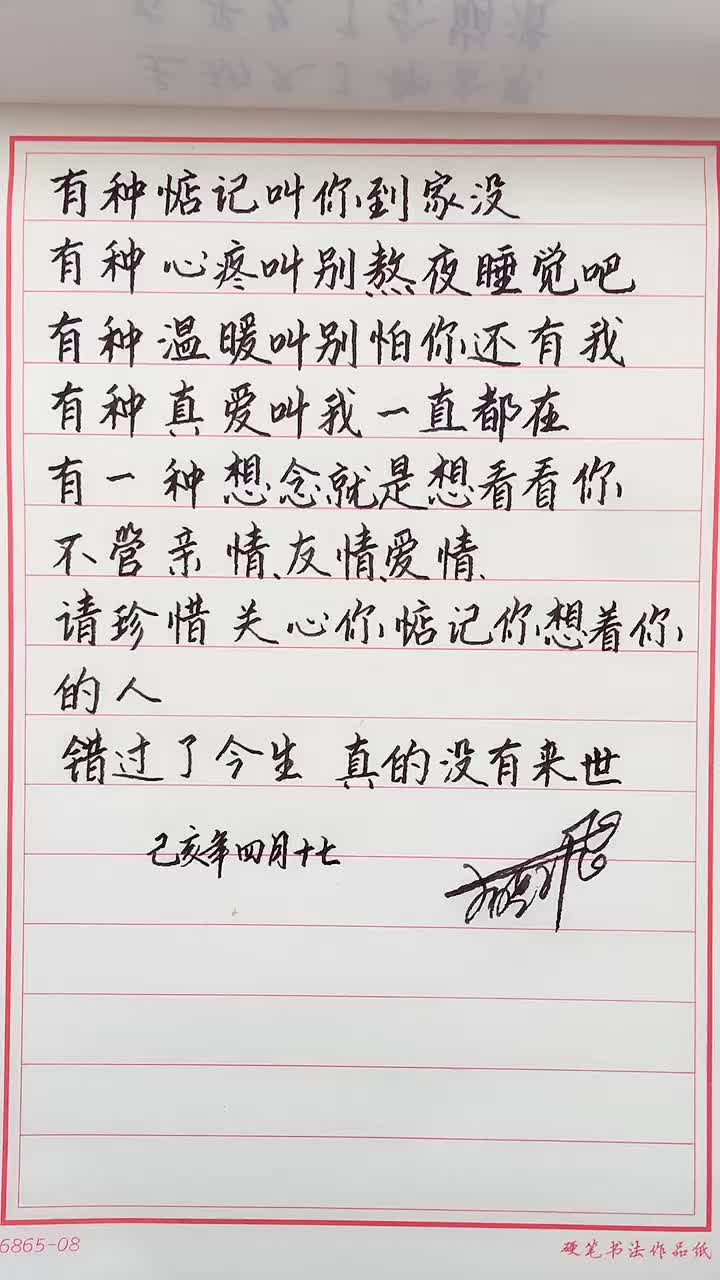 有种惦记叫你到家没
有种心疼叫别熬夜睡觉吧
有种温暖叫别怕你还有我
有种真爱叫我一直都在
有一种想念就是想看看你
不管亲情、友情、爱情、
请珍惜关心你惦记你想着你
的人
错过了今生 真的没有来世
己亥年四月十七
6865-08
硬笔书法作品纸